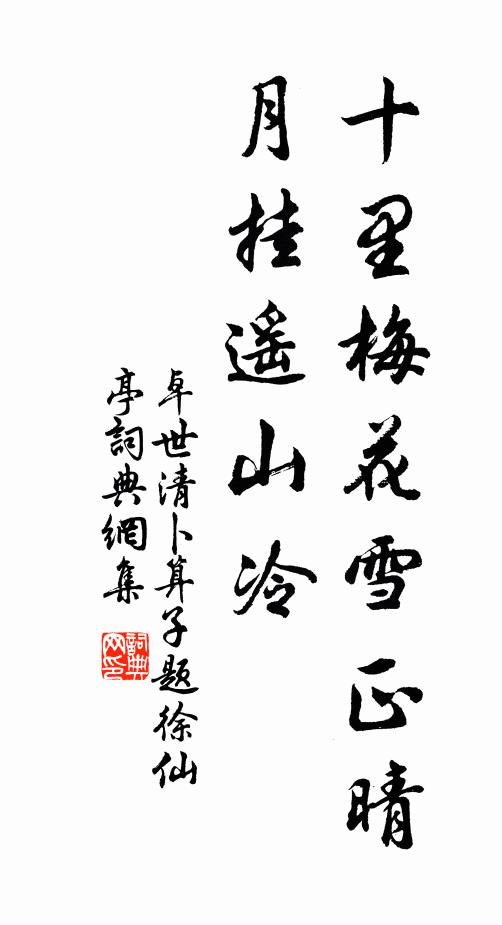 十里梅花雪正晴
月挂遥山冷
卓世清卜算子题徐仙
亭詞典網集
詞典
网印